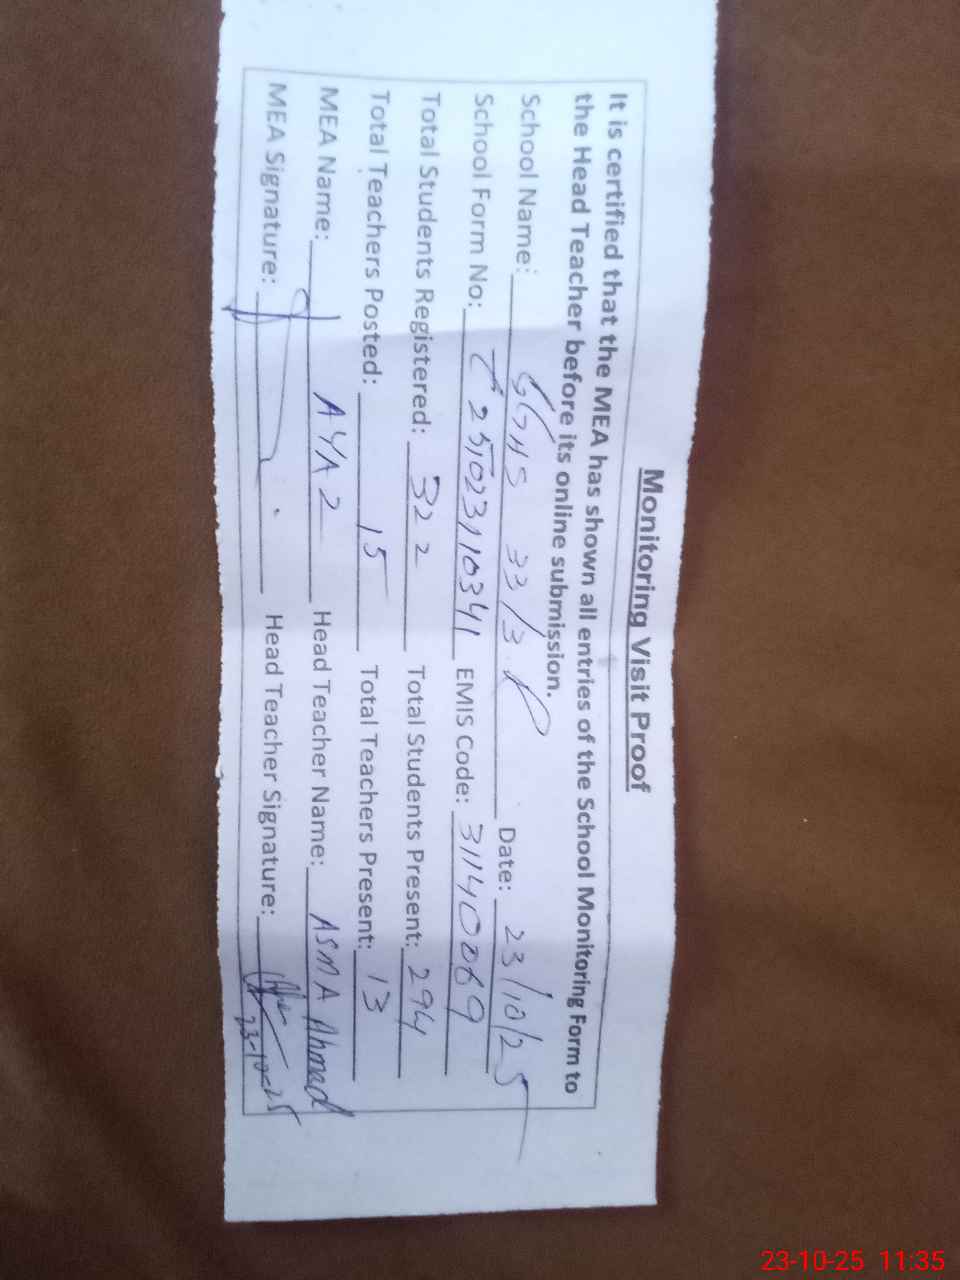 Monitoring Visit Proof
It is certified that the MEA has shown all entries of the School Monitoring Form to
the Head Teacher before its online submission.
School Name: GGHS 33/3.R Date: 23/10/25
School Form No: 251023110341 EMIS Code: 31140069
Total Students Registered: 322 Total Students Present: 294
Total Teachers Posted: 15 Total Teachers Present: 13
MEA Name: AYAZ Head Teacher Name: ASMA Ahmad
MEA Signature: Head Teacher Signature:
23-10-25
23-10-25 11:35